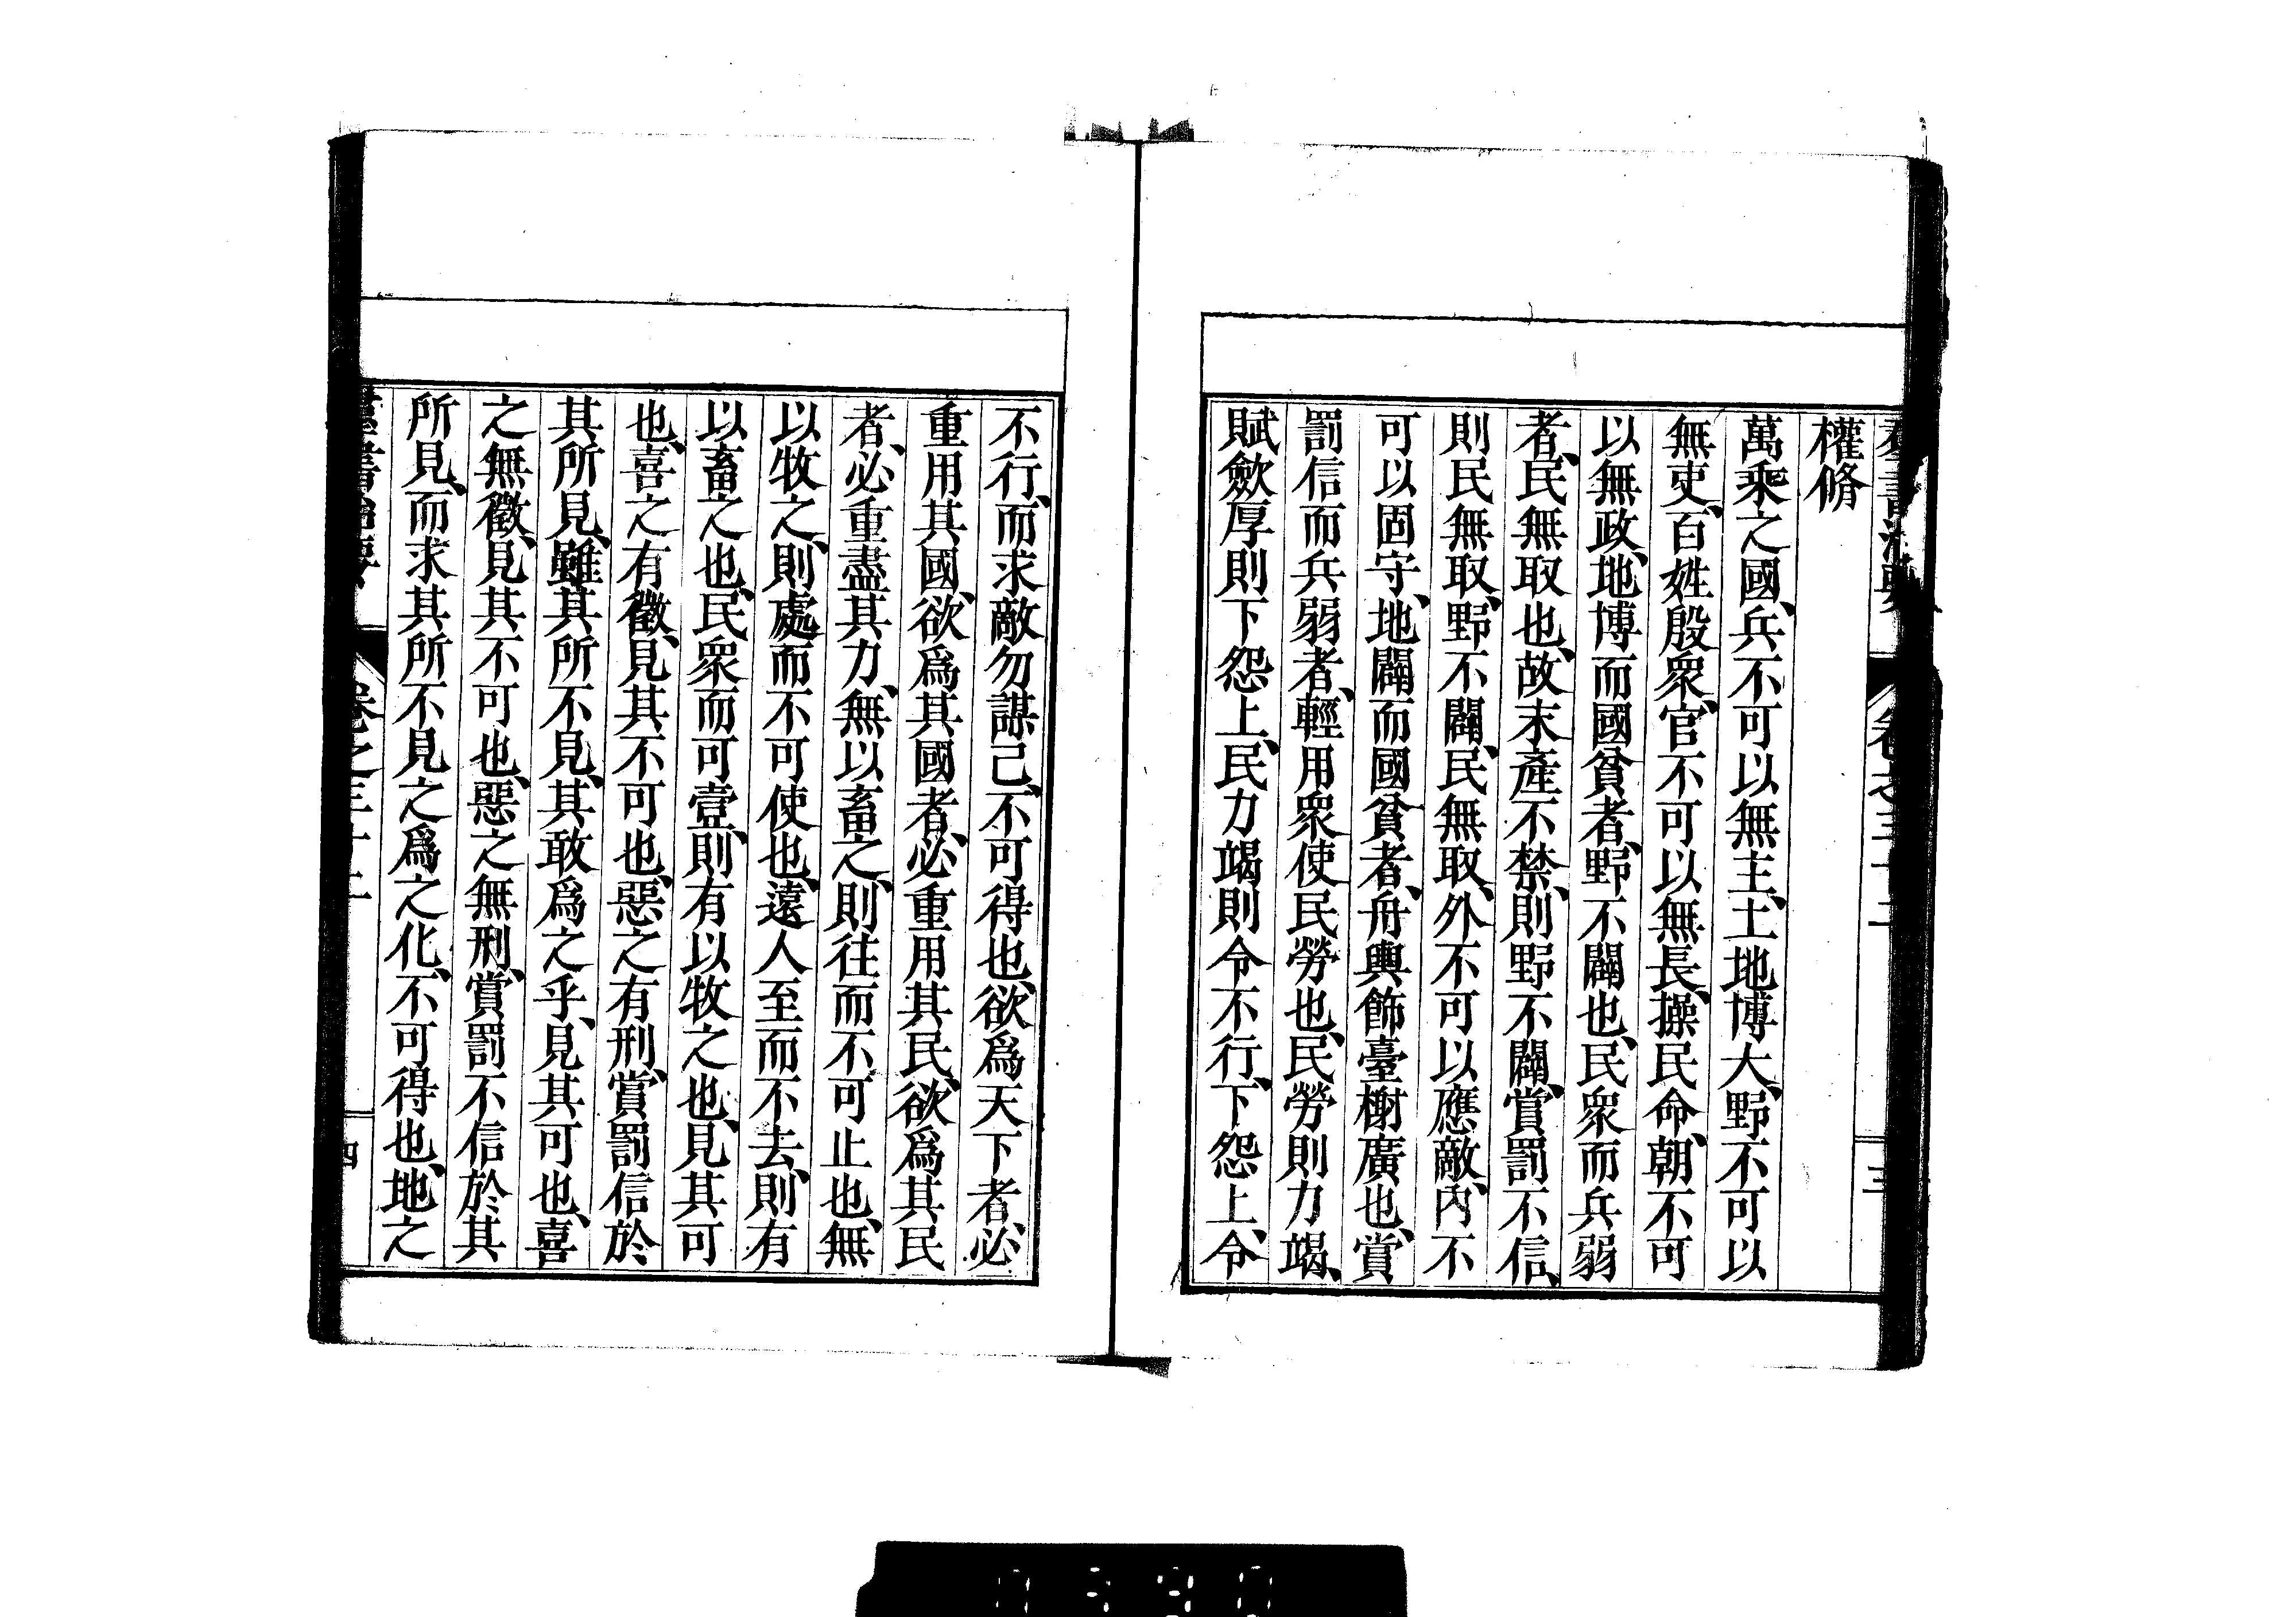 權脩
萬乘之國、兵不可以無主、土地博大、野不可以
無吏、百姓殷衆、官不可以無長、操民命、朝不可
以無政、地博而國貧者、野不闢也、民衆而兵弱
者、民無取也、故末產不禁、則野不闢、賞罰不信、
則民無取、野不闢、民無取、外不可以應敵、內不
可以固守、地闢而國貧者、舟輿飾臺榭廣也、賞
罰信而兵弱者、輕用衆使民勞也、民勞則力竭、
賦斂厚則下怨上、民力竭則令不行、下怨上、令
不行、而求敵勿謀己、不可得也、欲爲天下者、必
重用其國、欲爲其國者、必重用其民、欲爲其民
者、必重盡其力、無以畜之、則往而不可止也、無
以牧之、則處而不可使也、遠人至而不去、則有
以畜之也、民衆而可壹、則有以牧之也、見其可
也、喜之有徵、見其不可也、惡之有刑、賞罰信於
其所見、雖其所不見、其敢爲之乎、見其可也、喜
之無徵、見其不可也、惡之無刑、賞罰不信於其
所見、而求其所不見之爲之化、不可得也、地之
羣書治要 卷之三十二 四